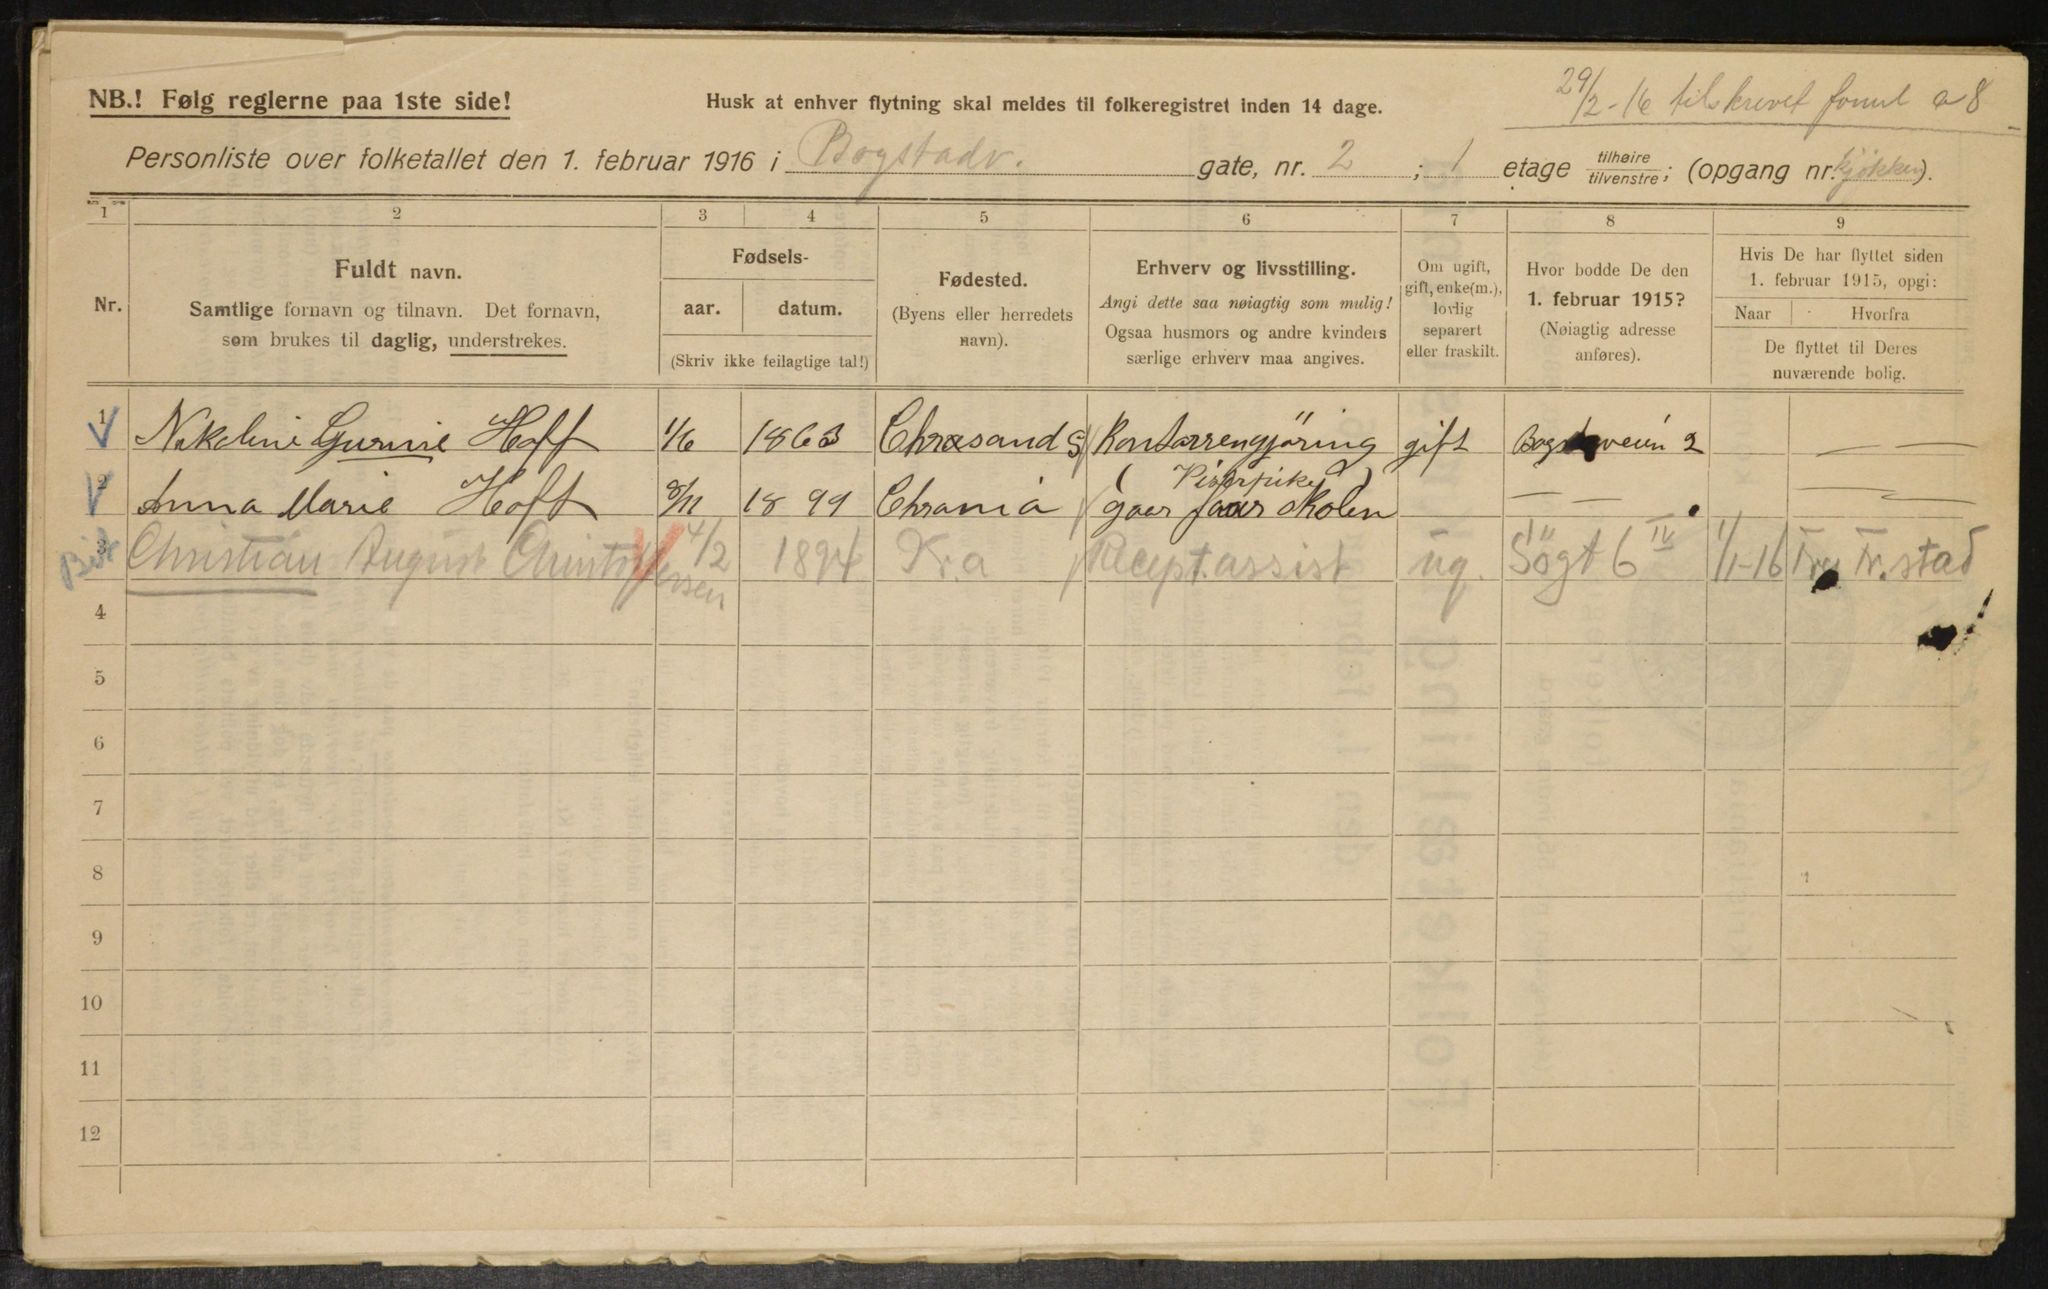 29/2-16 tilskrevet
NB.! Følg reglerne paa 1ste side!
Husk at enhver flytning skal meldes til folkeregistret inden 14 dage.
Personliste over folketallet den 1. februar 1916 i Bogstadv. gate, nr. 2 ; 1 etage tilhøire/tilvenstre; (opgang nr. kjøkken).
1 2 3 4 5 6 7 8 9
Nr.
Fuldt navn.
Samtlige fornavn og tilnavn. Det fornavn,
som brukes til daglig, understrekes.
Fødsels-
aar. datum.
(Skriv ikke feilagtige tal!)
Fødested.
(Byens eller herredets
navn).
Erhverv og livsstilling.
Angi dette saa nøiagtig som mulig!
Ogsaa husmors og andre kvinders
særlige erhverv maa angives.
Om ugift,
gift, enke(m.),
lovlig
separert
eller fraskilt.
Hvor bodde De den
1. februar 1915?
(Nøiagtig adresse
anføres).
Hvis De har flyttet siden
1. februar 1915, opgi:
Naar Hvorfra
De flyttet til Deres
nuværende bolig.
1 Hoff 1/6 1863 Chrsand S gift 2 — —
2 Anna Marie Hoff 8/11 1899 Chrania gaar skolen — — — —
3 Christian August Christoffersen 4/2 1894 Kra Recept.assist ug. Sögt 6 IV 1/1-16 Fr.stad
4
5
6
7
8
9
10
11
12